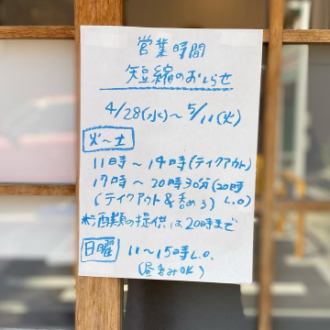 営業時間
短縮のおしらせ
4/28(水)〜5/11(火)
火〜土
11時〜14時(テイクアウト)
17時〜20時30分(20時L.O)
(テイクアウト&
※酒類の提供は20時まで
日曜 11〜15時L.O.
(昼呑みOK)